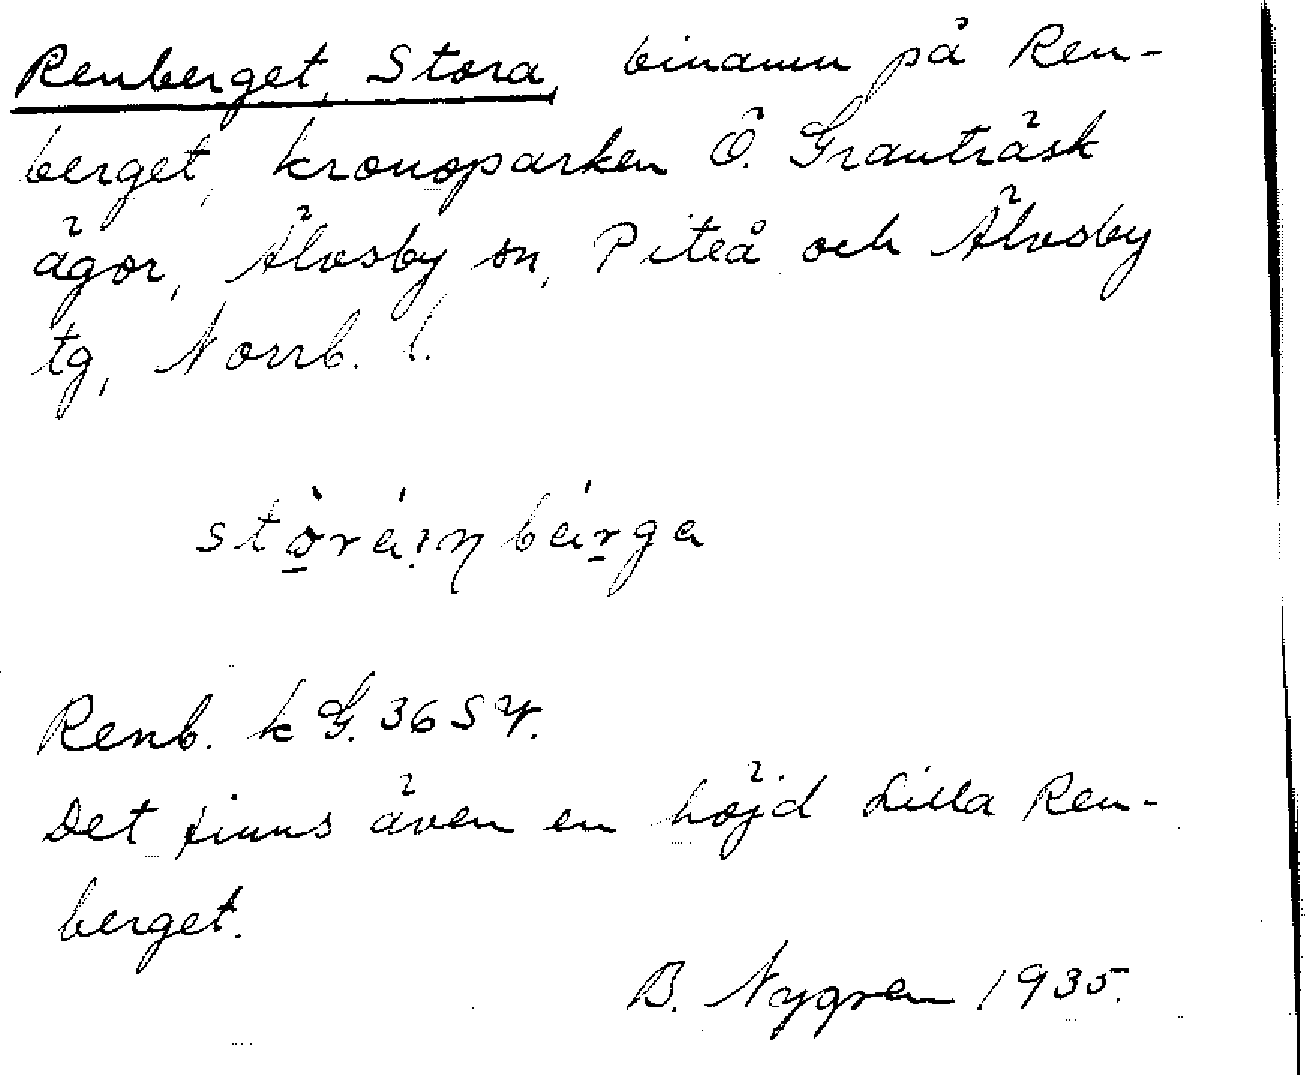 Renberget, Stora, binamn på Ren-
berget, kronoparken Ö. Granträsk
ägor, Älvsby sn, Piteå och Älvsby
tg, Norrb. l.
Renb. k G. 36 S V.
Det finns även en höjd Lilla Ren-
berget.
B. Nygren 1935.